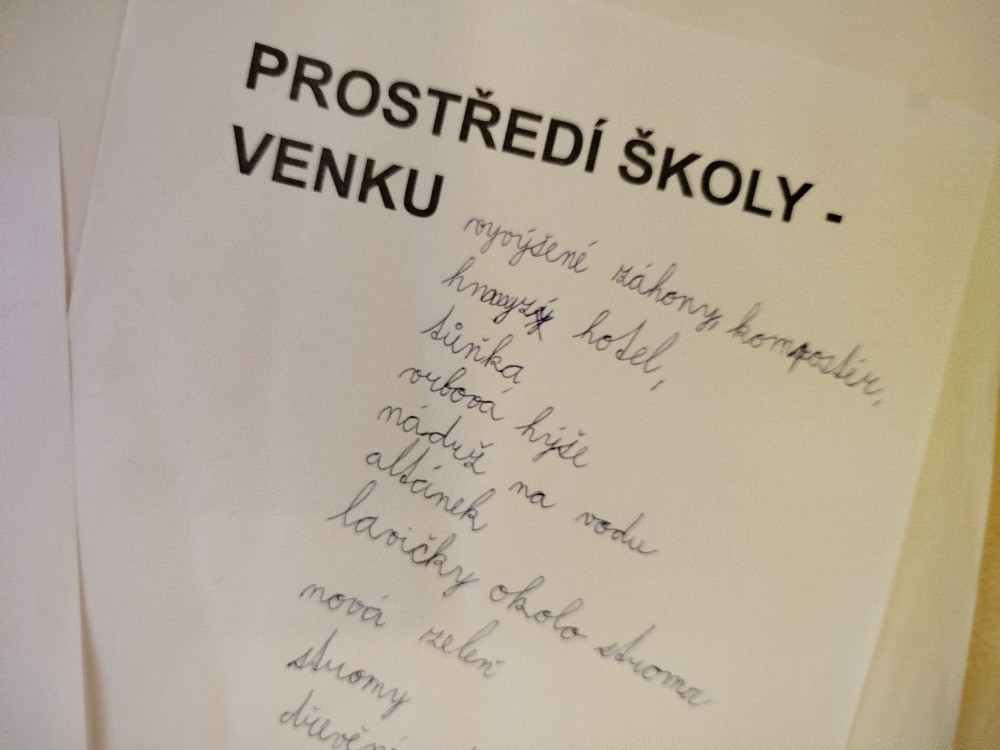 PROSTŘEDÍ ŠKOLY -
VENKU
vyvýšené záhony, kompostér,
hmyzý hotel,
tůňka
vrbová hýše
nádrž na vodu
altánek
lavičky okolo stroma
nová zeleň
stromy